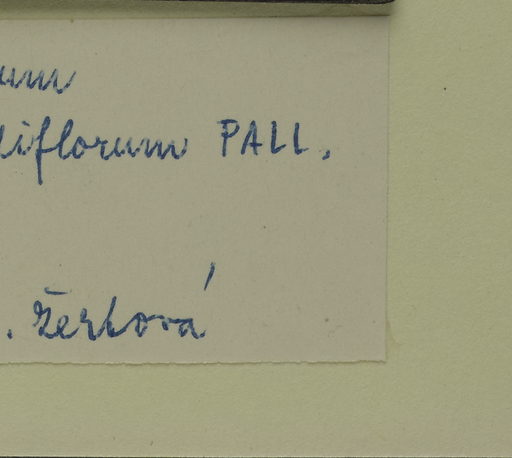 um
diflorum PALL.
. Žertová